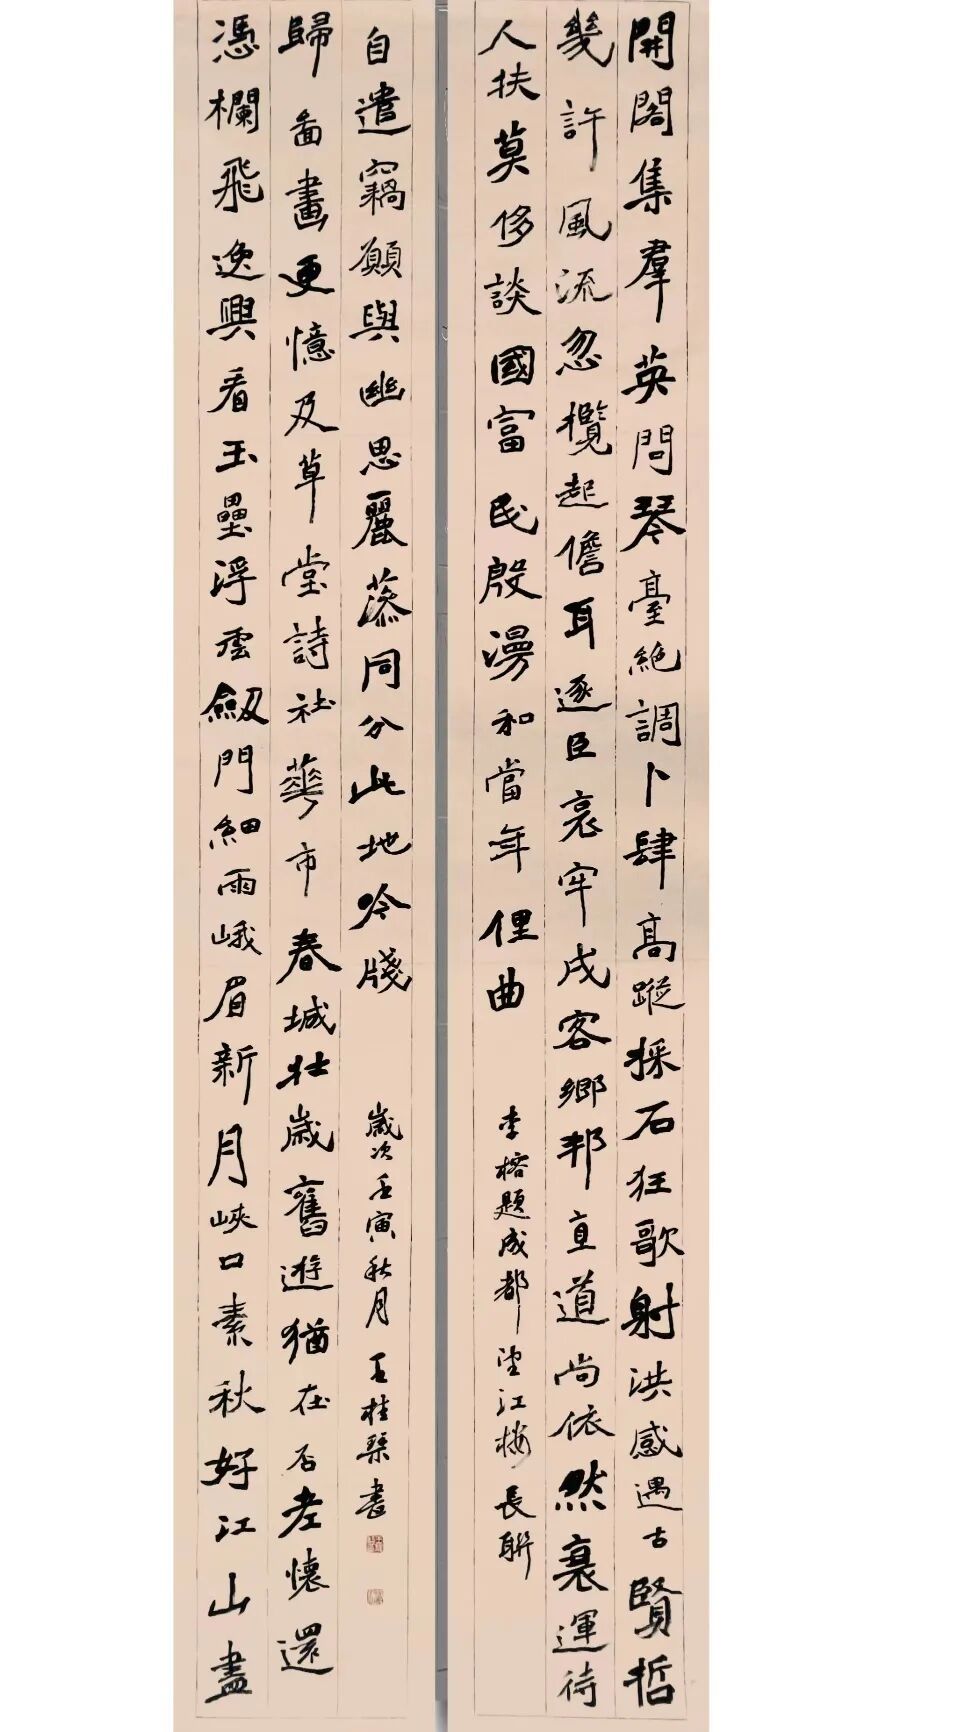 開閣集羣英問琴臺絕調卜肆高蹤採石狂歌射洪感遇古賢哲
幾許風流忽攬起儋耳逐臣哀牢戍客鄉邦直道尚依然衰運待
人扶莫侈談國富民殷漫和當年俚曲
李榕題成都望江樓長聯
憑欄飛逸興看玉壘浮雲劒門細雨峨眉新月峽口素秋好江山盡
歸畫畫更憶及草堂詩社華市春城壯歲舊遊猶在否老懷還
自遣竊願與幽思麗藻同分此地吟牋
歲次壬寅秋月王桂琹書